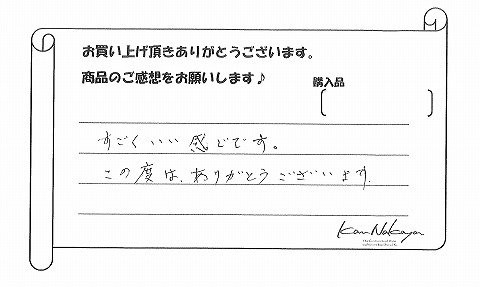 お買い上げ頂きありがとうございます。
商品のご感想をお願いします♪
購入品
すごくいい感じです。
この度は、ありがとうございます。
Kan Nakayan